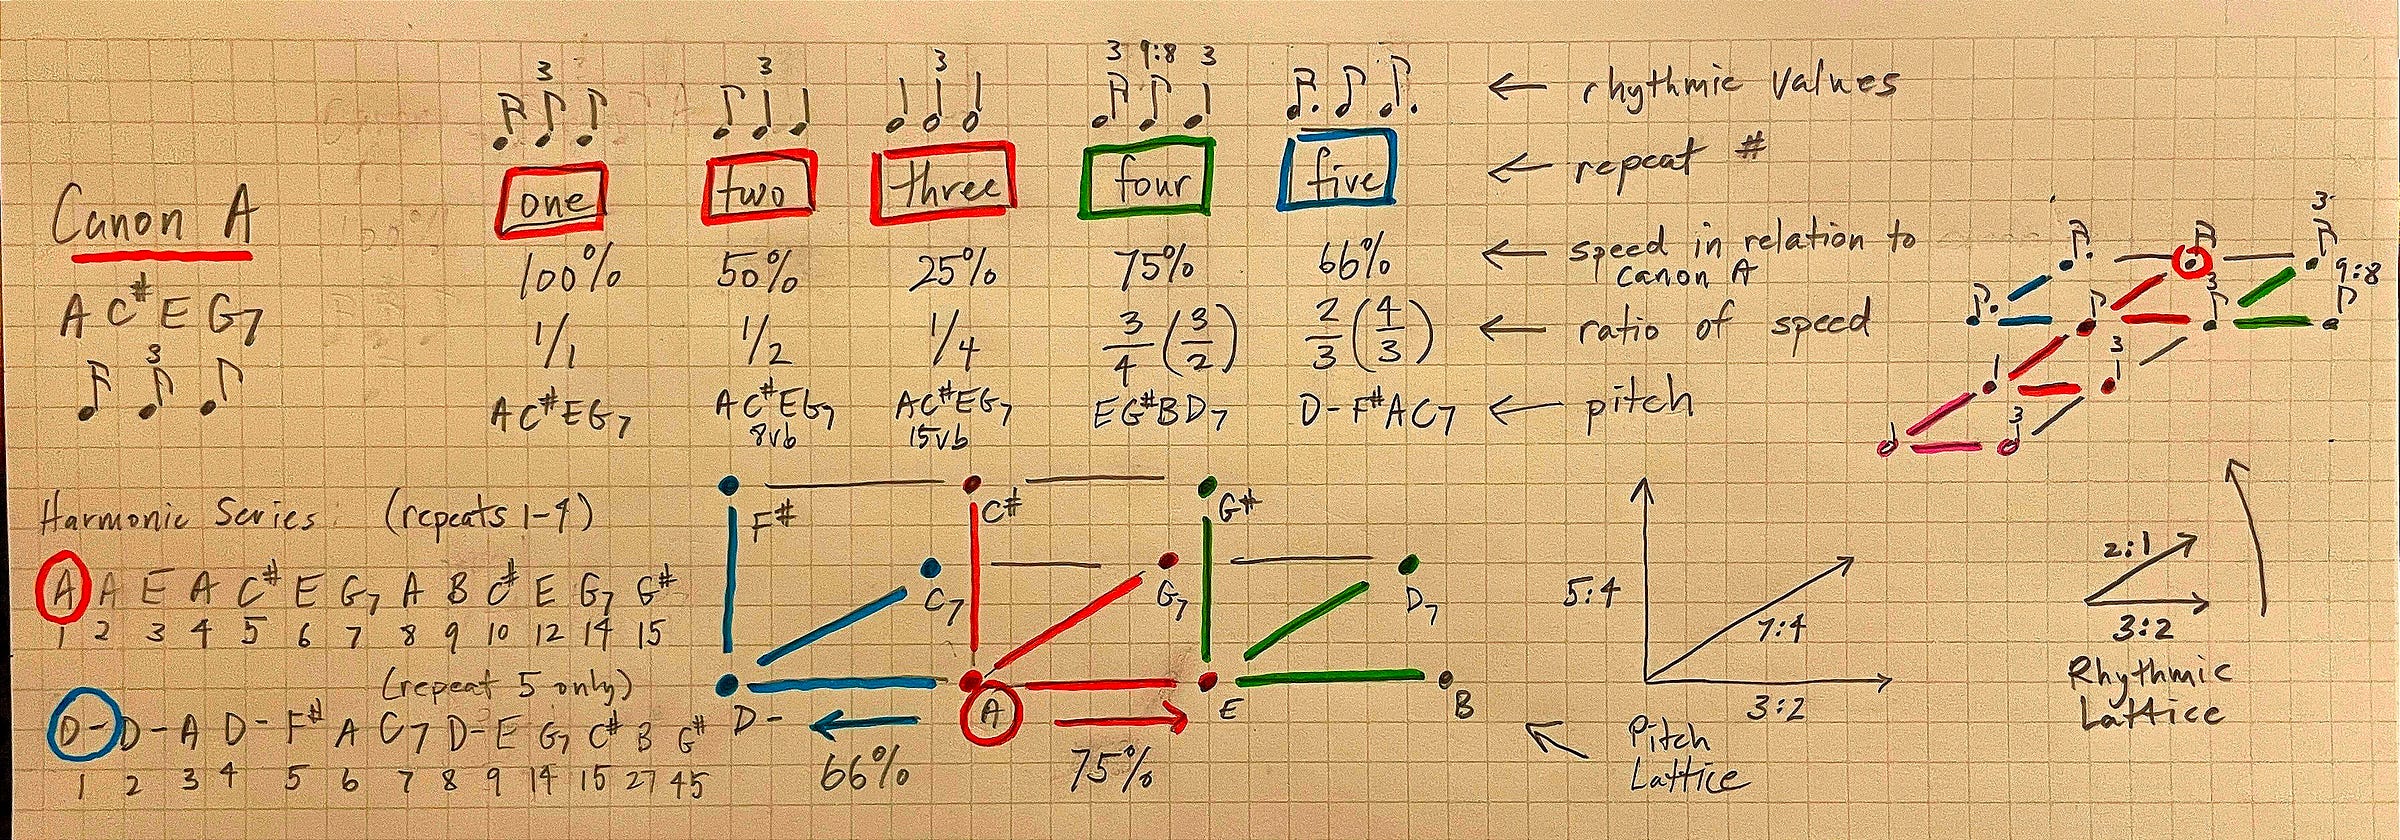 3 3 3 3 9:8 3
← rhythmic values
one two three four five ← repeat #
Canon A
100% 50% 25% 75% 66% ← speed in relation to
canon A
A C# E G7
1/1 1/2 1/4 3/4 (3/2) 2/3 (4/3) ← ratio of speed
3
AC#EG7 AC#EG7 AC#EG7 EG#BD7 D-F#AC7 ← pitch
8vb 15vb
3
9:8
3
3
3
Harmonic Series: (repeats 1-4)
A A E A C# E G7 A B C# E G7 G#
1 2 3 4 5 6 7 8 9 10 12 14 15
(repeat 5 only)
D- D- A D- F# A C7 D- E G7 C# B G#
1 2 3 4 5 6 7 8 9 14 15 27 45
F# C# G#
C7 G7 D7
D- A E B
66% 75%
Pitch
Lattice
5:4
7:4
3:2
2:1
3:2
Rhythmic
Lattice